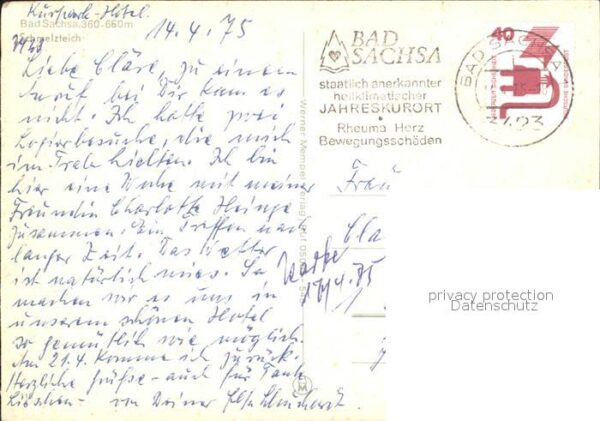 Kurpark-Hotel
Bad Sachsa, 360-660m
Schmelzteich
14.4.75
Liebe Cläre, zu einem
bei Dir kam es
nicht. Ich hatte zwei
Logierbesuche, die mich
im Trab hielten. Ich bin
hier eine Woche mit meiner
Freundin Charlotte
zusammen. Ein Treffen nach
langer Zeit. Das Wetter
ist natürlich mies. So
machen wir es uns in
unserem schönen Hotel
so gemütlich wie möglich.
Am 21.4. komme ich zurück.
Herzliche Grüße - auch für Tante
Lieschen - von Deiner
BAD
SACHSA
staatlich anerkannter
heilklimatischer
JAHRESKURORT
Rheuma Herz
Bewegungsschäden
BAD SACHSA
3423
40
Werner
Frau
Cla
17/4.75
privacy protection
Datenschutz